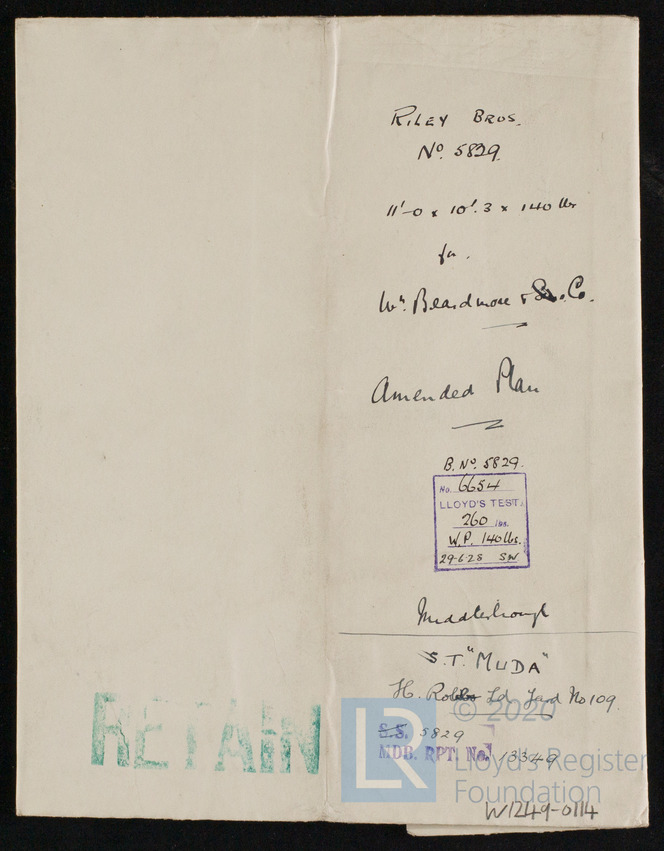 RILEY BROS.
No. 5829.
11'-0 x 10'.3 x 140 lbs
for.
Wm. Beardmore & Co.
Amended Plan
B. No. 5829.
No. 6654
LLOYD'S TEST.
260 lbs.
W.P. 140 lbs.
29-6-28 SW
Middlesbrough
S.T. "MUDA"
H. Robb Ld. Yard No 109.
© 2020
S.S. 5829
MDB. RPT. No. 13349
RETAIN
LR
Lloyd's Register
Foundation
W1249-0114